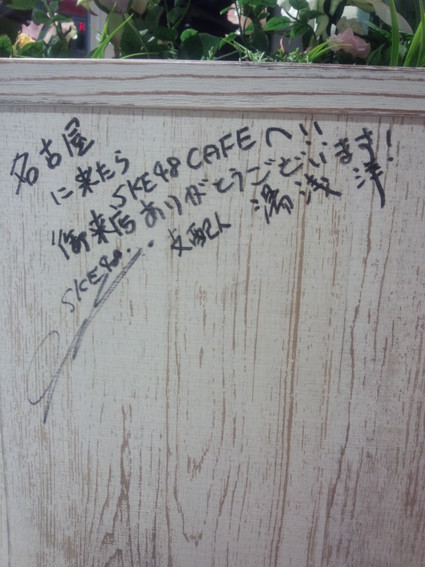 名古屋
に来たら
SKE48 CAFEへ!!
御来店ありがとうございます!
SKE48. 支配人 湯浅 洋